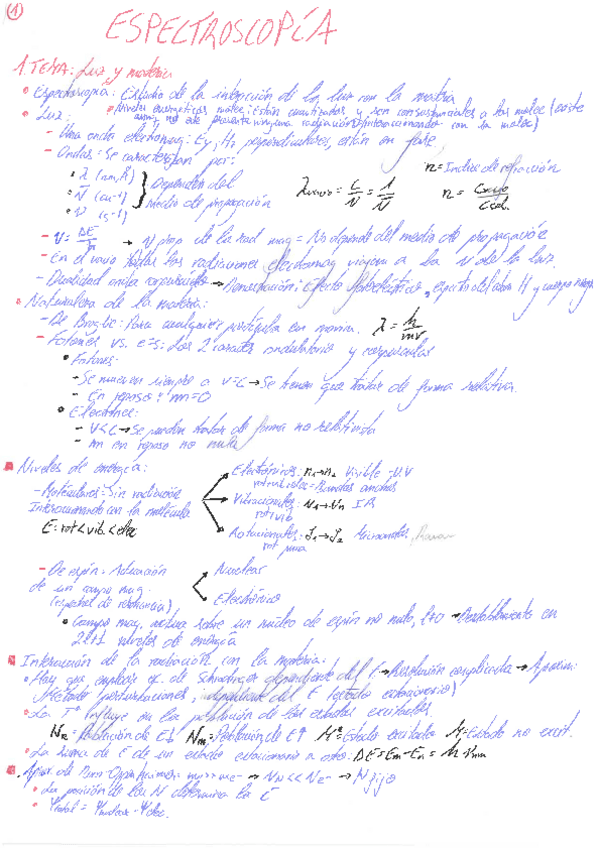 1
ESPECTROSCOPÍA
1. TEMA: Luz y materia
• Espectroscopía: Estudio de la interacción de la luz con la materia
• Luz: • Niveles energéticos molec: están cuantizados y son consustanciales a las molec (existe
aunq no esté presente ninguna radiación interaccionando con la molec)
- Una onda electromag: Ey, Hz perpendiculares, están en fase,
- Ondas = Se caracterizan por: n = Indice de refracción
• λ (nm, Å)
• ν̄ (cm⁻¹) } Dependen del λvacío = c/ν = 1/ν̄ n = Cvacío/Csol.
• ν (s⁻¹) medio de propagación
- ν = ΔE/h → ν prop. de la rad mag = No depende del medio de propagación
- En el vacío todas las radiaciones electromag viajan a la v de la luz.
- Dualidad onda corpúsculo → Demostración: Efecto fotoeléctrico, espectro del átom H y cuerpo negro
• Naturaleza de la materia:
- De Broglie: Para cualquier partícula en movim. λ = h/mv
- Fotones vs. e⁻s: Los 2 caract ondulatorio y corpuscular
• Fotones:
- Se mueven siempre a v=c → Se tienen que tratar de forma relativa.
- En reposo: m=0
• Electrones:
- v<c → Se pueden tratar de forma no relativista
- m en reposo no nula
Niveles de energía: Electrónicos: n₁→n₂ Visible - U.V
rotvibelec = Bandas anchas
- Moleculares: Sin radiación Vibracionales: ν₁→νn IR
Interaccionando con la molécula rotvib
E: rot < vib. < elec Rotacionales: J₁→J₂ Microondas,
rot pura
- De espín: Actuación Nuclear
de un campo mag. Electrónico
(espectral de resonancia)
• Campo mag. actúa sobre un núcleo de espín no nulo, I≠0 → Desdoblamiento en
2I+1 niveles de energía
Interacción de la radiación con la materia:
• Hay que emplear ec. de Schrödinger dependiente del t → Resolución complicada → Aproxim:
Método perturbaciones, independiente del t (estado estacionario)
• La Tª influye en la población de los estados excitados
Nn = Población de E↓ Nm = Población de E↑ M* = Estado excitado M = Estado no excit.
• La suma de E de un estado estacionario a otro: ΔE = Em - En = h · νnm
Aprox. de Born-Oppenheimer: → → N fijo
• La posición de los N determina la E
• Ψtotal = Ψnuclear · Ψelec.